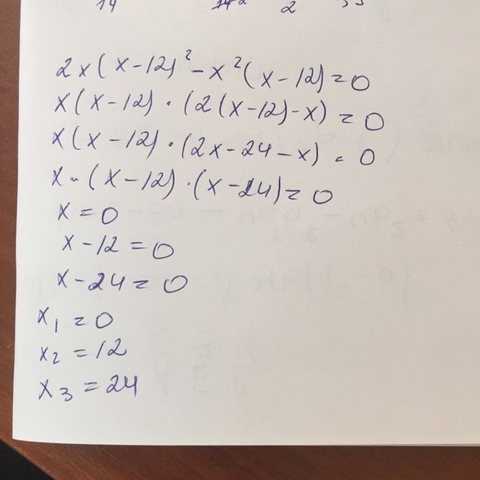 14 2
2x(x-12)² - x²(x-12)=0
x(x-12)·(2(x-12)-x)=0
x(x-12)·(2x-24-x)=0
x·(x-12)·(x-24)=0
x=0
x-12=0
x-24=0
x₁=0
x₂=12
x₃=24